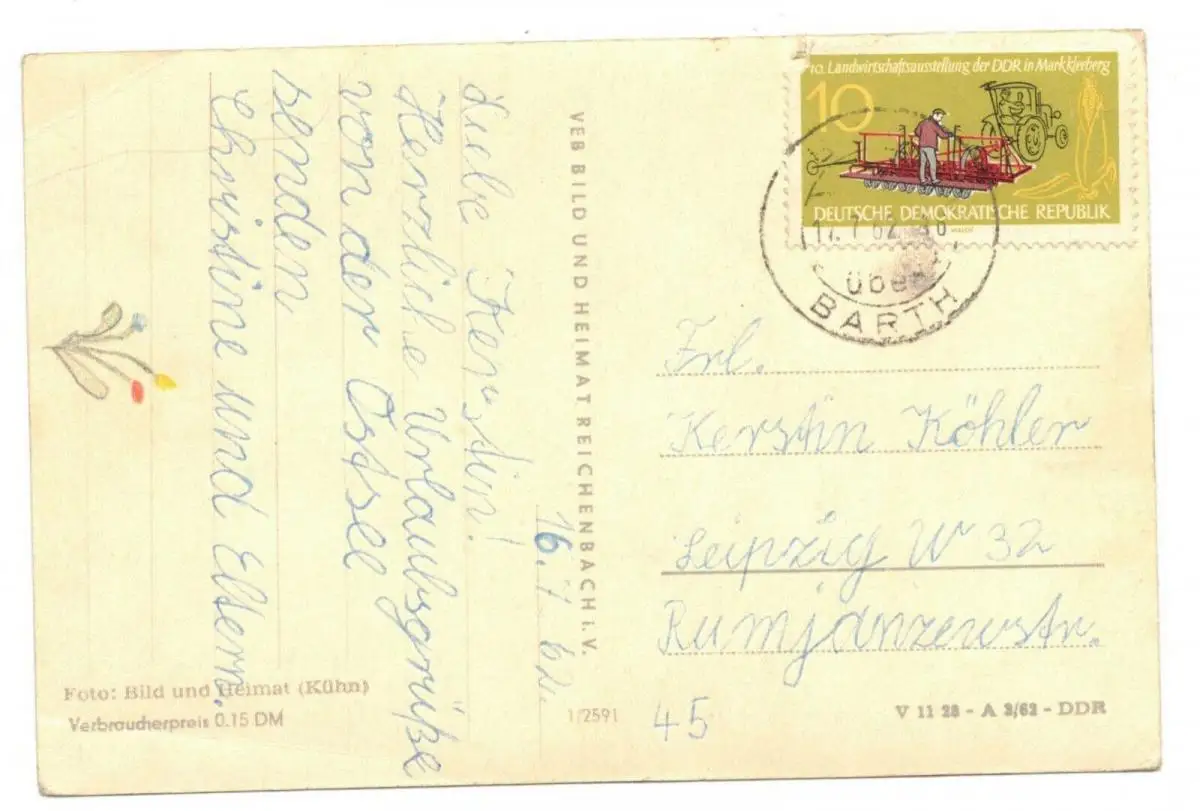 16. 7. 62.
Liebe Kerstin!
Herzliche Urlaubsgrüße
von der Ostsee
senden
Christine und Eltern.
VEB BILD UND HEIMAT REICHENBACH i. V.
10. Landwirtschaftsausstellung der DDR in Markkleeberg
10
DEUTSCHE DEMOKRATISCHE REPUBLIK
17.7.62
über
BARTH
Frl.
Kerstin Köhler
Leipzig W 32
Rumjanzewstr.
45
Foto: Bild und Heimat (Kühn)
Verbraucherpreis 0.15 DM
1/2591
V 11 28 - A 3/62 - DDR